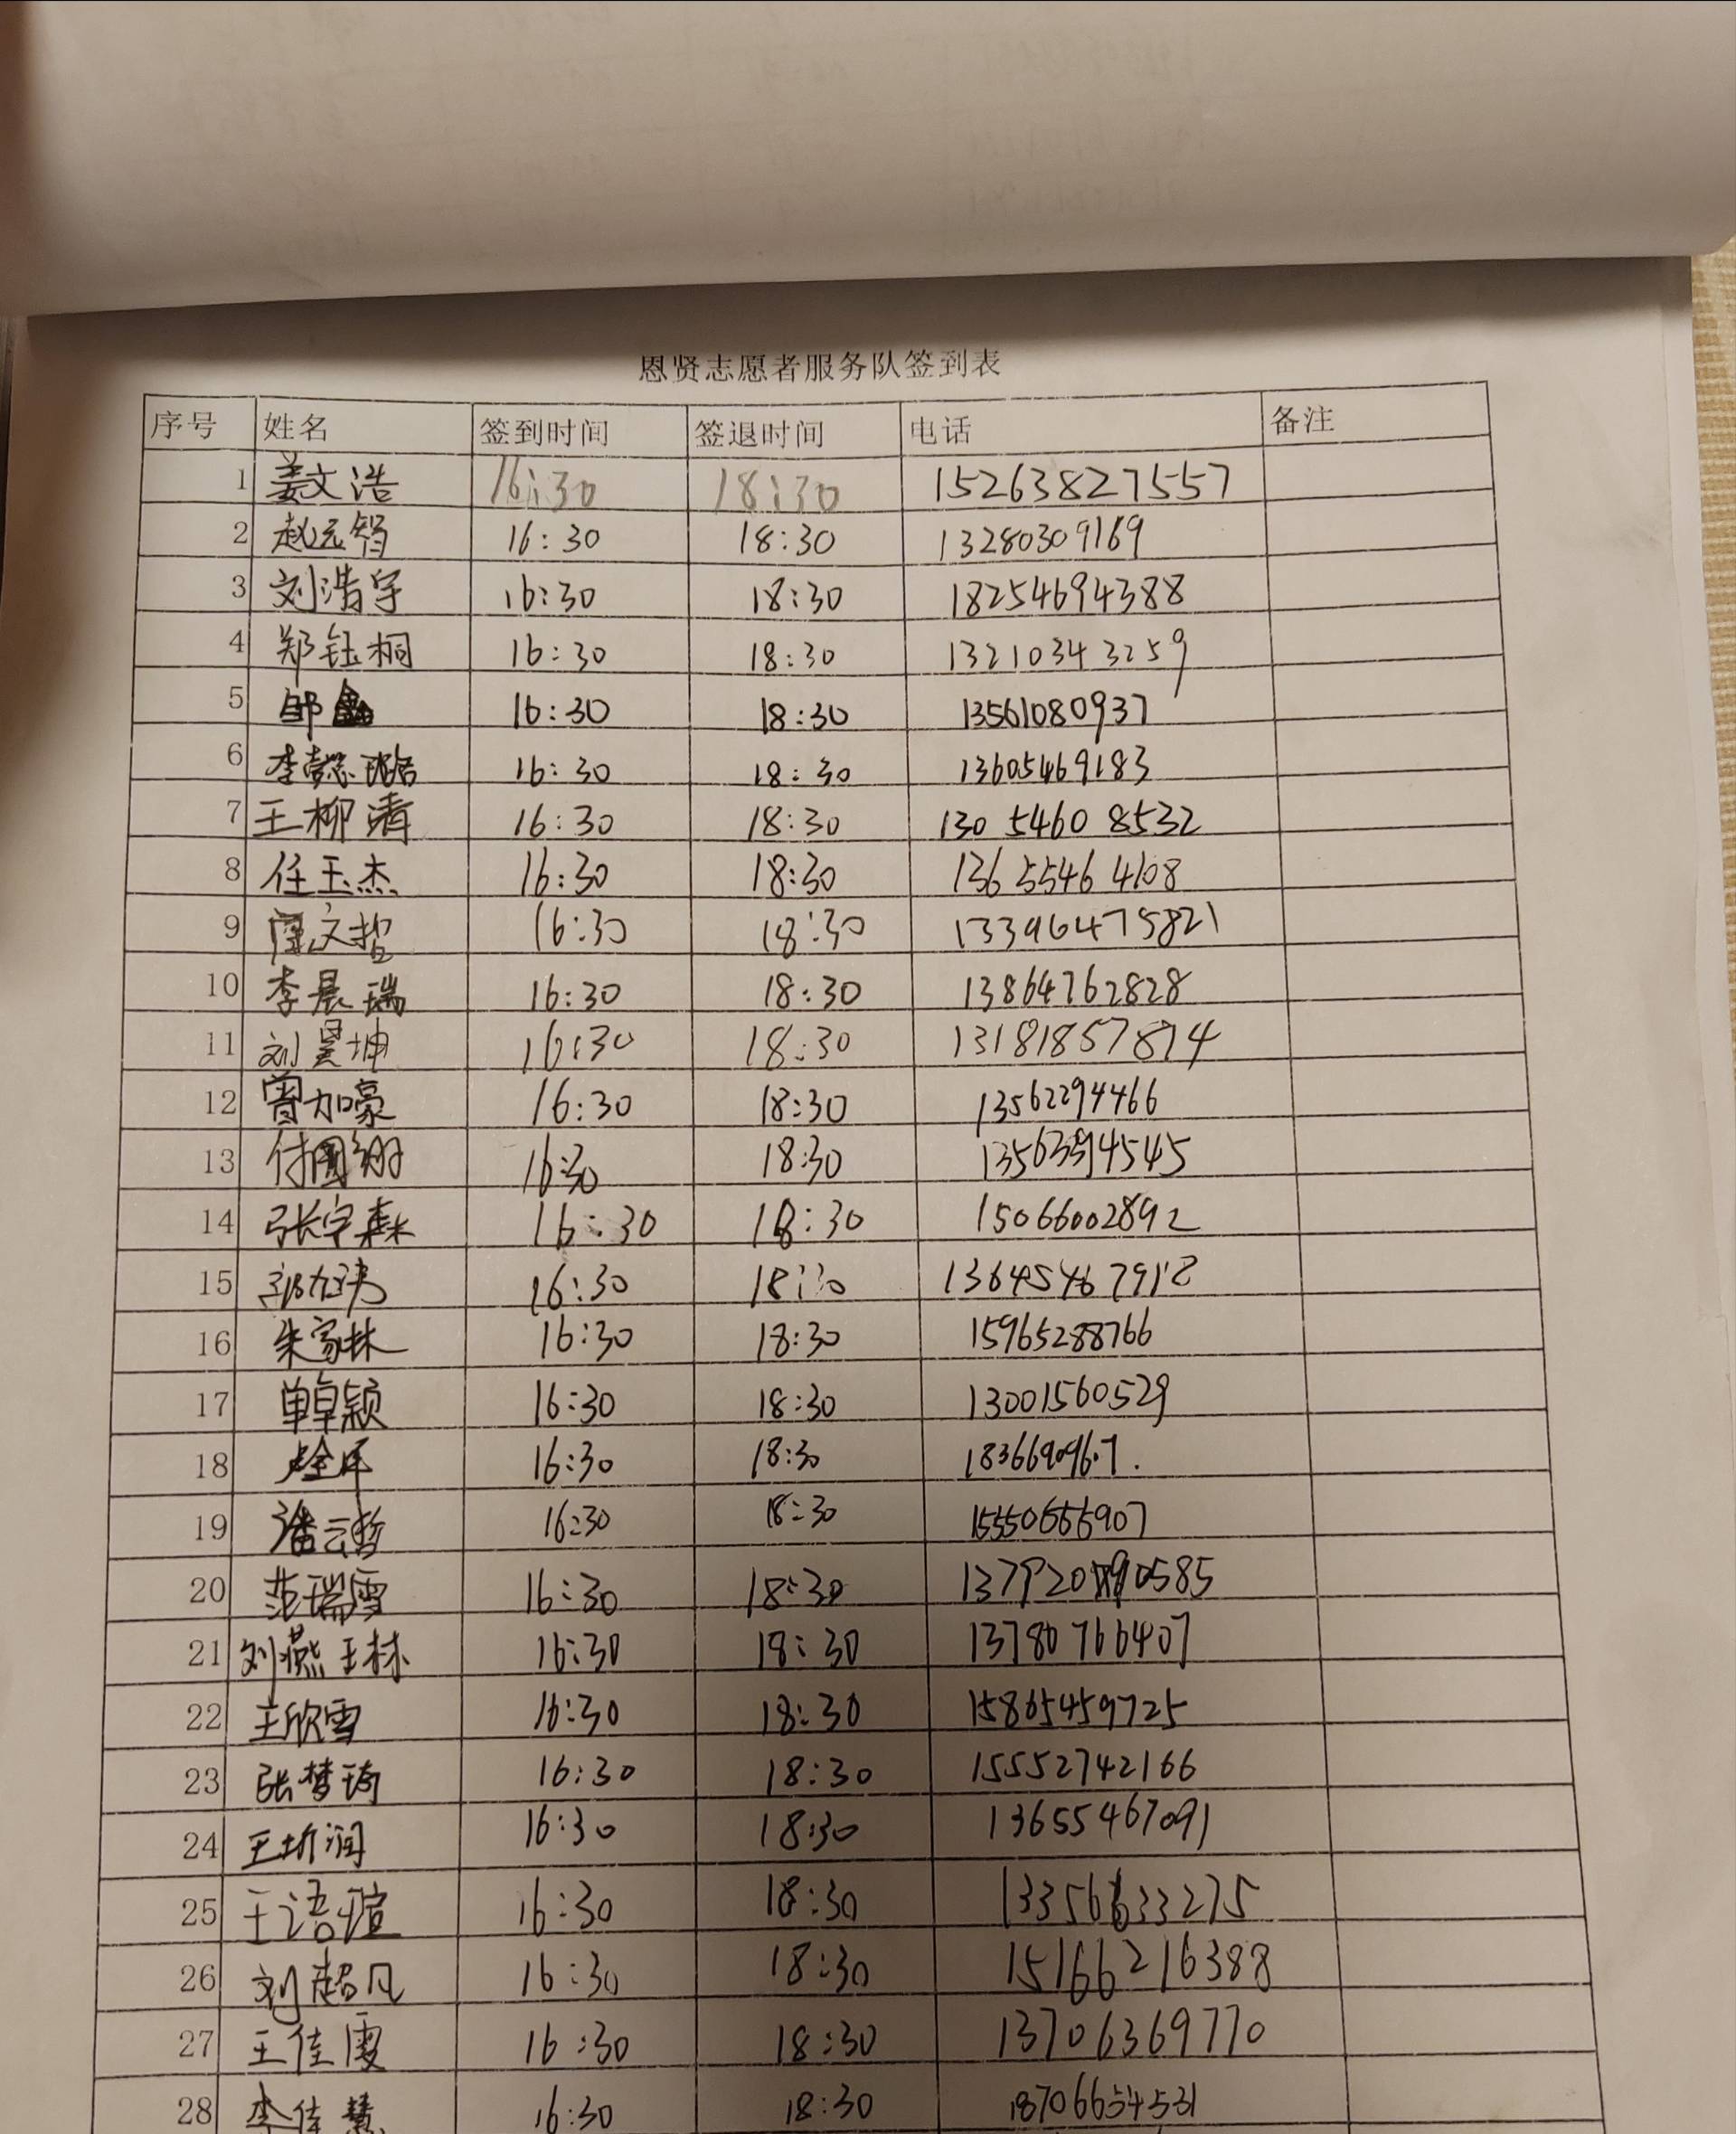 恩贤志愿者服务队签到表
序号 姓名 签到时间 签退时间 电话 备注
1 姜文浩 16:30 18:30 15263827557
2 赵元智 16:30 18:30 13280309169
3 刘浩宇 16:30 18:30 18254694388
4 郑钰桐 16:30 18:30 13210343259
5 邹 16:30 18:30 13561080937
6 李懿璐 16:30 18:30 13605469183
7 王柳清 16:30 18:30 130 5460 8532
8 任玉杰 16:30 18:30 136 5546 4108
9 文哲 16:30 18:30 13396475821
10 李晨瑞 16:30 18:30 13864762828
11 刘昊坤 16:30 18:30 13181857874
12 曾加豪 16:30 18:30 13562294466
13 付 16:30 18:30
14 张宇森 16:30 18:30 15066002892
15 16:30 18:30
16 朱家林 16:30 18:30 15965288766
17 单卓颖 16:30 18:30 13001560529
18 16:30 18:30
19 潘云哲 16:30 18:30
20 范瑞雪 16:30 18:30
21 刘燕琳 16:30 18:30 13780766407
22 王欣雪 16:30 18:30 15865459725
23 张梦琦 16:30 18:30 15552742166
24 王圻润 16:30 18:30 13655467091
25 王语瑄 16:30 18:30 13356633275
26 刘超凡 16:30 18:30 15166216388
27 王佳雯 16:30 18:30 13706369770
28 李佳慧 16:30 18:30 18706654531